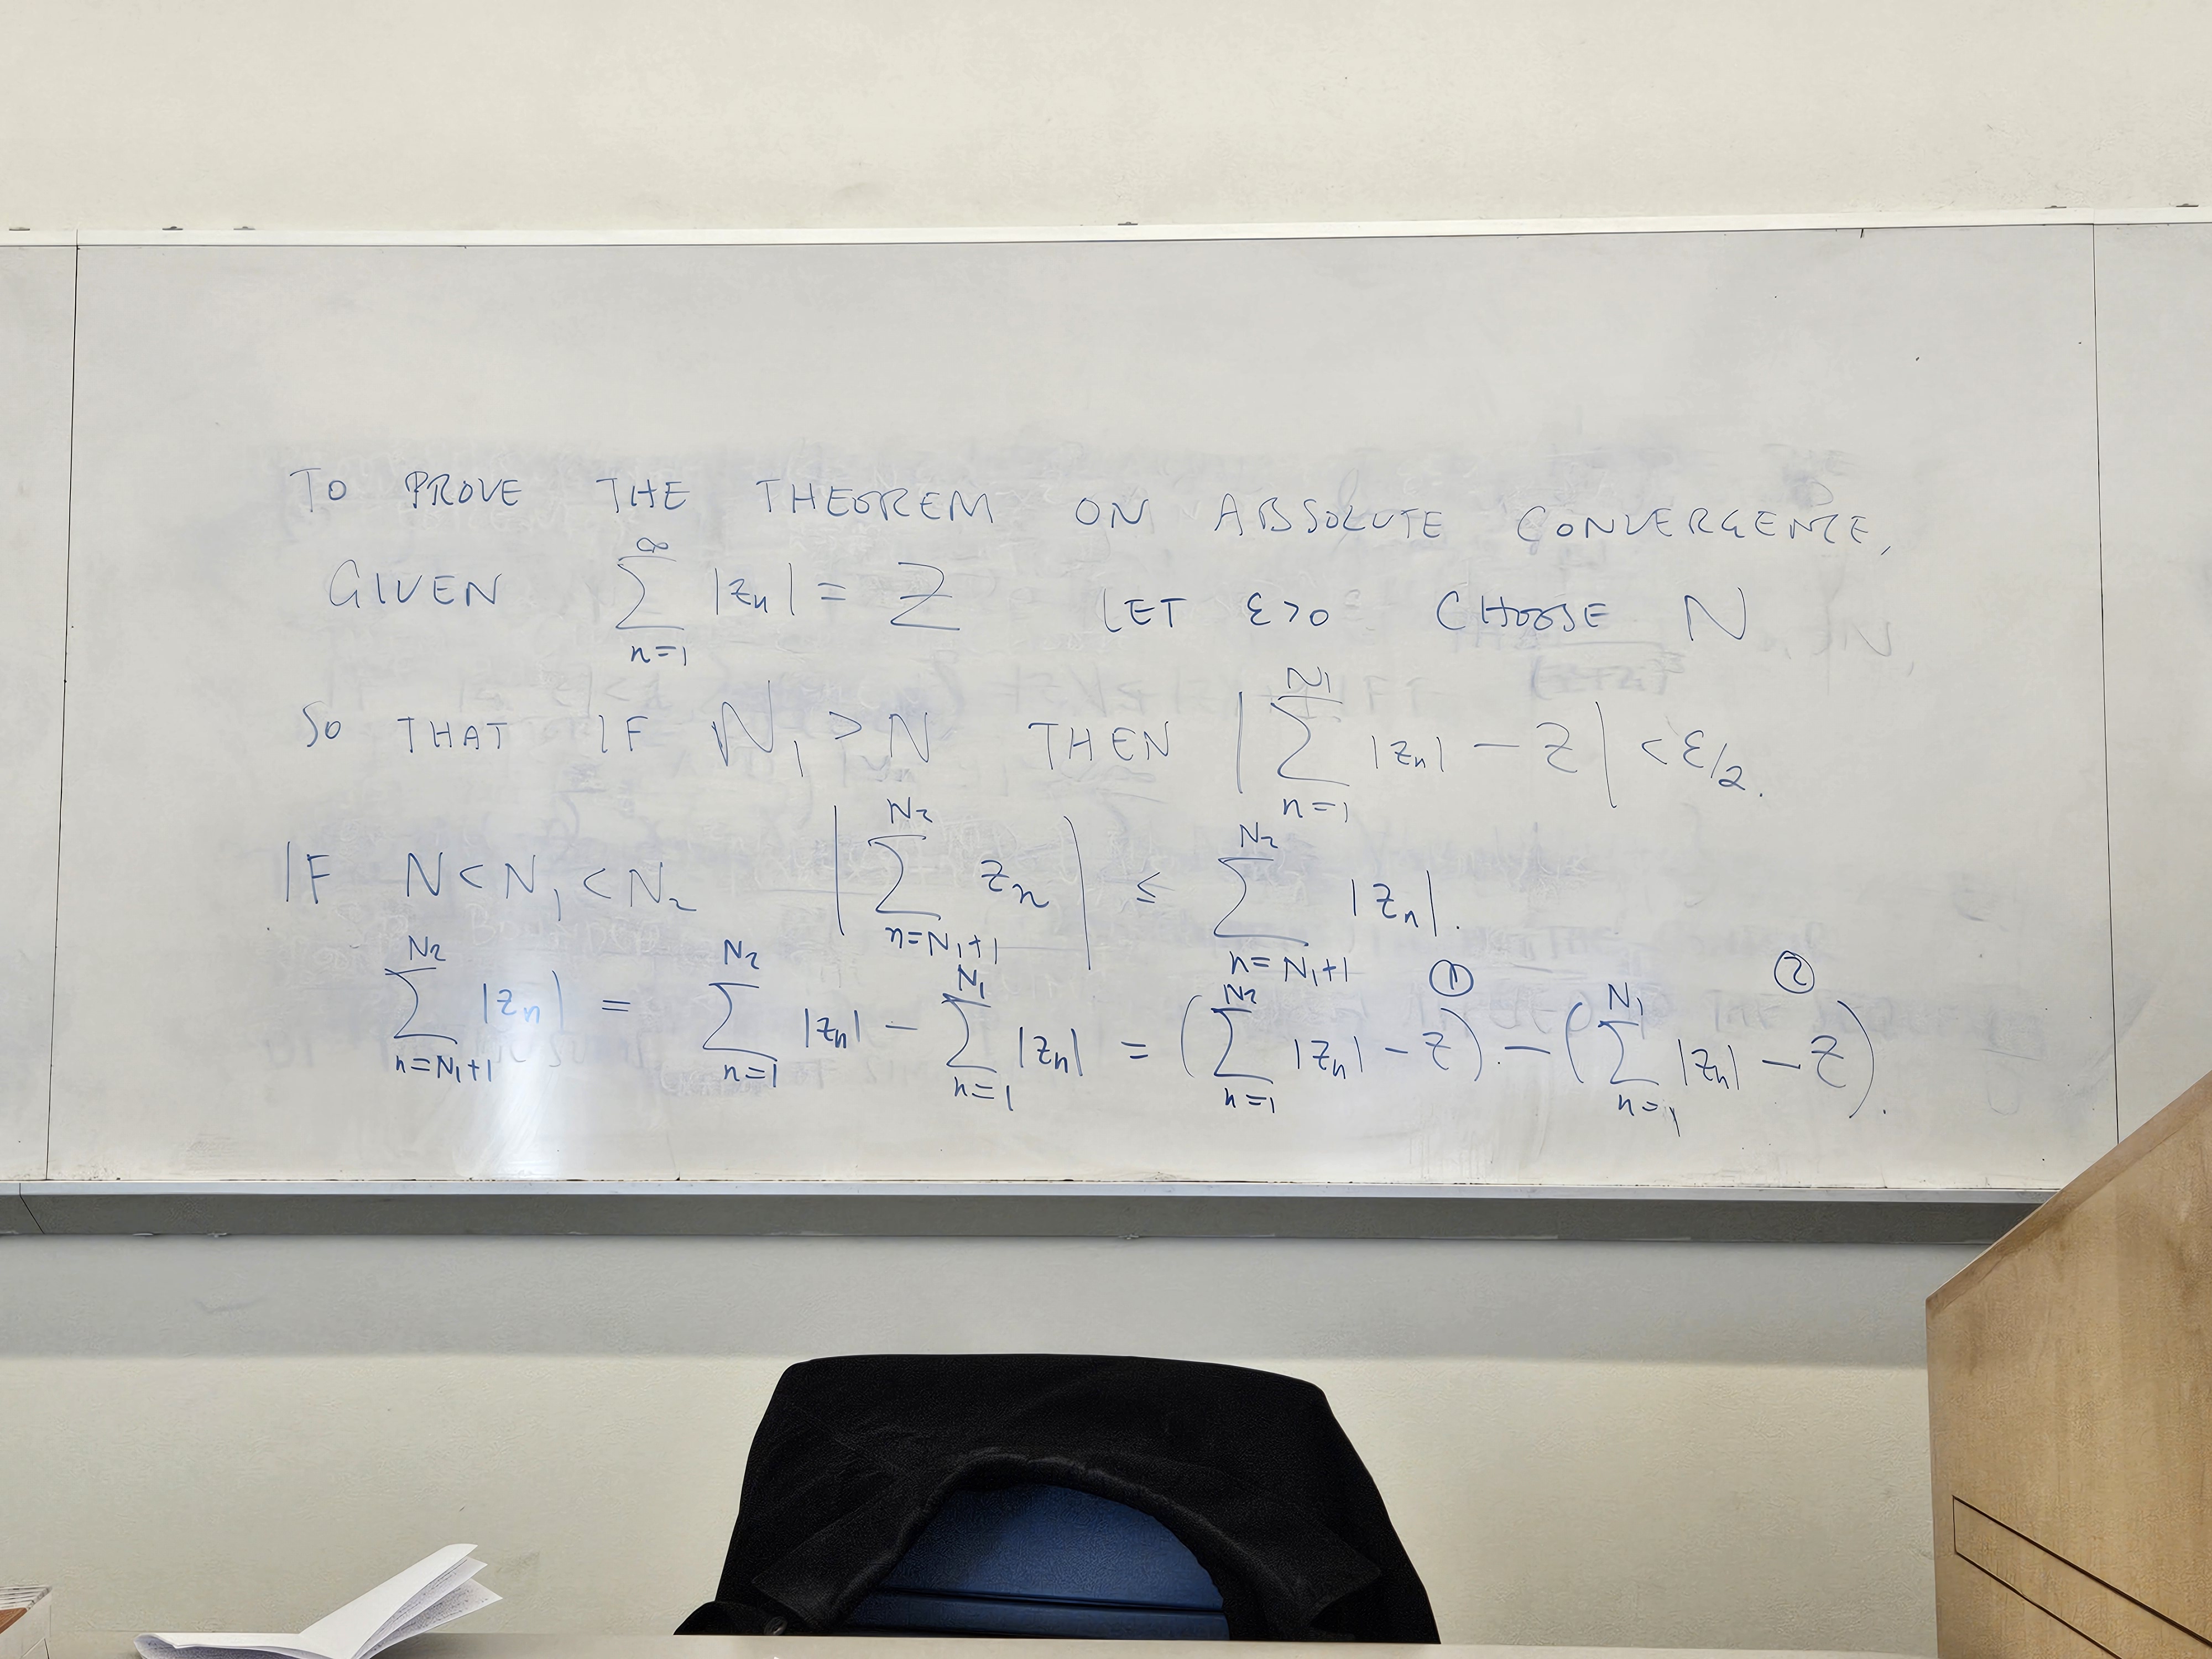 TO PROVE THE THEOREM ON ABSOLUTE CONVERGENCE,
GIVEN \sum_{n=1}^{\infty} |z_n| = Z LET ε>0 CHOOSE N
SO THAT IF N_1 > N THEN |\sum_{n=1}^{N_1} |z_n| - Z| < ε/2.
IF N < N_1 < N_2 |\sum_{n=N_1+1}^{N_2} z_n| ≤ \sum_{n=N_1+1}^{N_2} |z_n|.
\sum_{n=N_1+1}^{N_2} |z_n| = \sum_{n=1}^{N_2} |z_n| - \sum_{n=1}^{N_1} |z_n| = (\sum_{n=1}^{N_2} |z_n| - Z)^{①} - (\sum_{n=1}^{N_1} |z_n| - Z)^{②}.